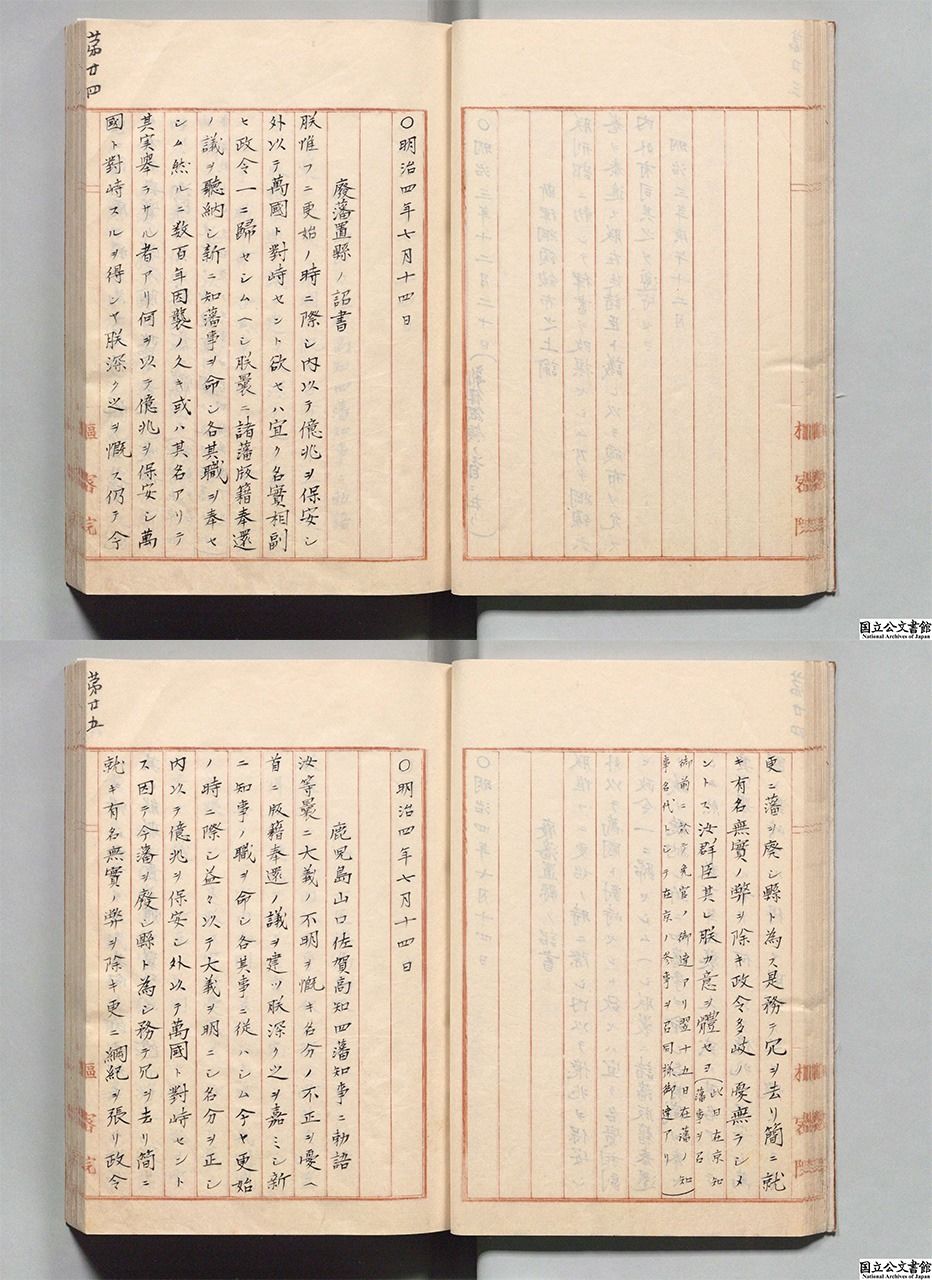 第廿四
〇明治四年七月十四日
廢藩置縣ノ詔書
朕惟フニ更始ノ時ニ際シ内以テ億兆ヲ保安シ
外以テ萬國ト對峙セント欲セハ宜ク名實相副
ヒ政令一ニ歸セシムヘシ朕曩ニ諸藩版籍奉還
ノ議ヲ聽納シ新ニ知藩事ヲ命シ各其職ヲ奉セ
シム然ルニ数百年因襲ノ久キ或ハ其名アリテ
其実舉ラサル者アリ何ヲ以テ億兆ヲ保安シ萬
國ト對峙スルヲ得ンヤ朕深ク之ヲ慨ス仍テ今
樞密院
国立公文書館
National Archives of Japan
更ニ藩ヲ廢シ縣ト為ス是務テ冗ヲ去リ簡ニ就
キ有名無實ノ弊ヲ除キ政令多岐ノ憂無ラシメ
ントス汝群臣其レ朕カ意ヲ體セヨ(此日在京知藩事ヲ召
御前ニ於テ免官ノ御達アリ翌十五日在藩ノ知
事名代トシテ在京ノ参事ヲ召同様御達アリ)
第廿五
〇明治四年七月十四日
鹿児島山口佐賀高知四藩知事ニ勅語
汝等曩ニ大義ノ不明ヲ慨キ名分ノ不正ヲ憂ヘ
首ニ版籍奉還ノ議ヲ建ツ朕深ク之ヲ嘉ミシ新
ニ知事ノ職ヲ命シ各其事ニ従ハシム今ヤ更始
ノ時ニ際シ益々以テ大義ヲ明ニシ名分ヲ正シ
内以テ億兆ヲ保安シ外以テ萬國ト對峙セント
ス因テ今藩ヲ廢シ縣ト為シ務テ冗ヲ去リ簡ニ
就キ有名無實ノ弊ヲ除キ更ニ綱紀ヲ張リ政令
樞密院
国立公文書館
National Archives of Japan